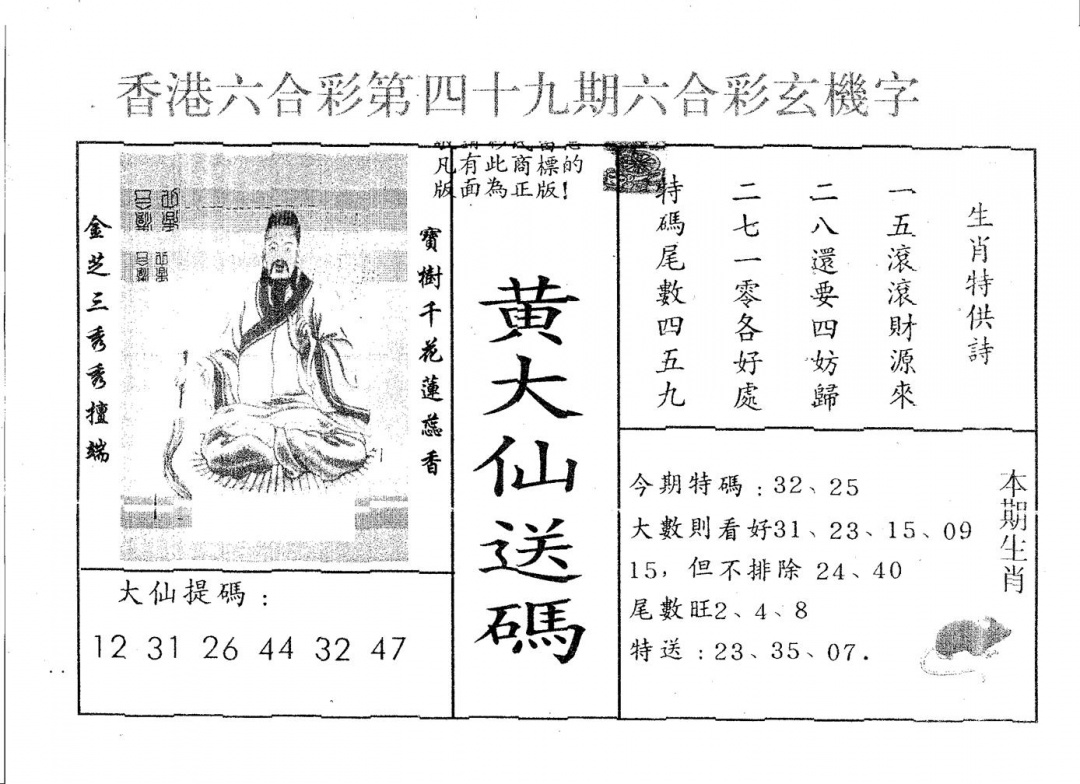 香港六合彩第四十九期六合彩玄機字
金芝三秀秀擅端
寶樹千花蓮蕊香
凡有此商標的
版面為正版！
黃大仙送碼
生肖特供詩
一五滾滾財源來
二八還要四妨歸
二七一零各好處
特碼尾數四五九
大仙提碼：
12 31 26 44 32 47
本期生肖
今期特碼：32、25
大數則看好31、23、15、09
15，但不排除 24、40
尾數旺2、4、8
特送：23、35、07.